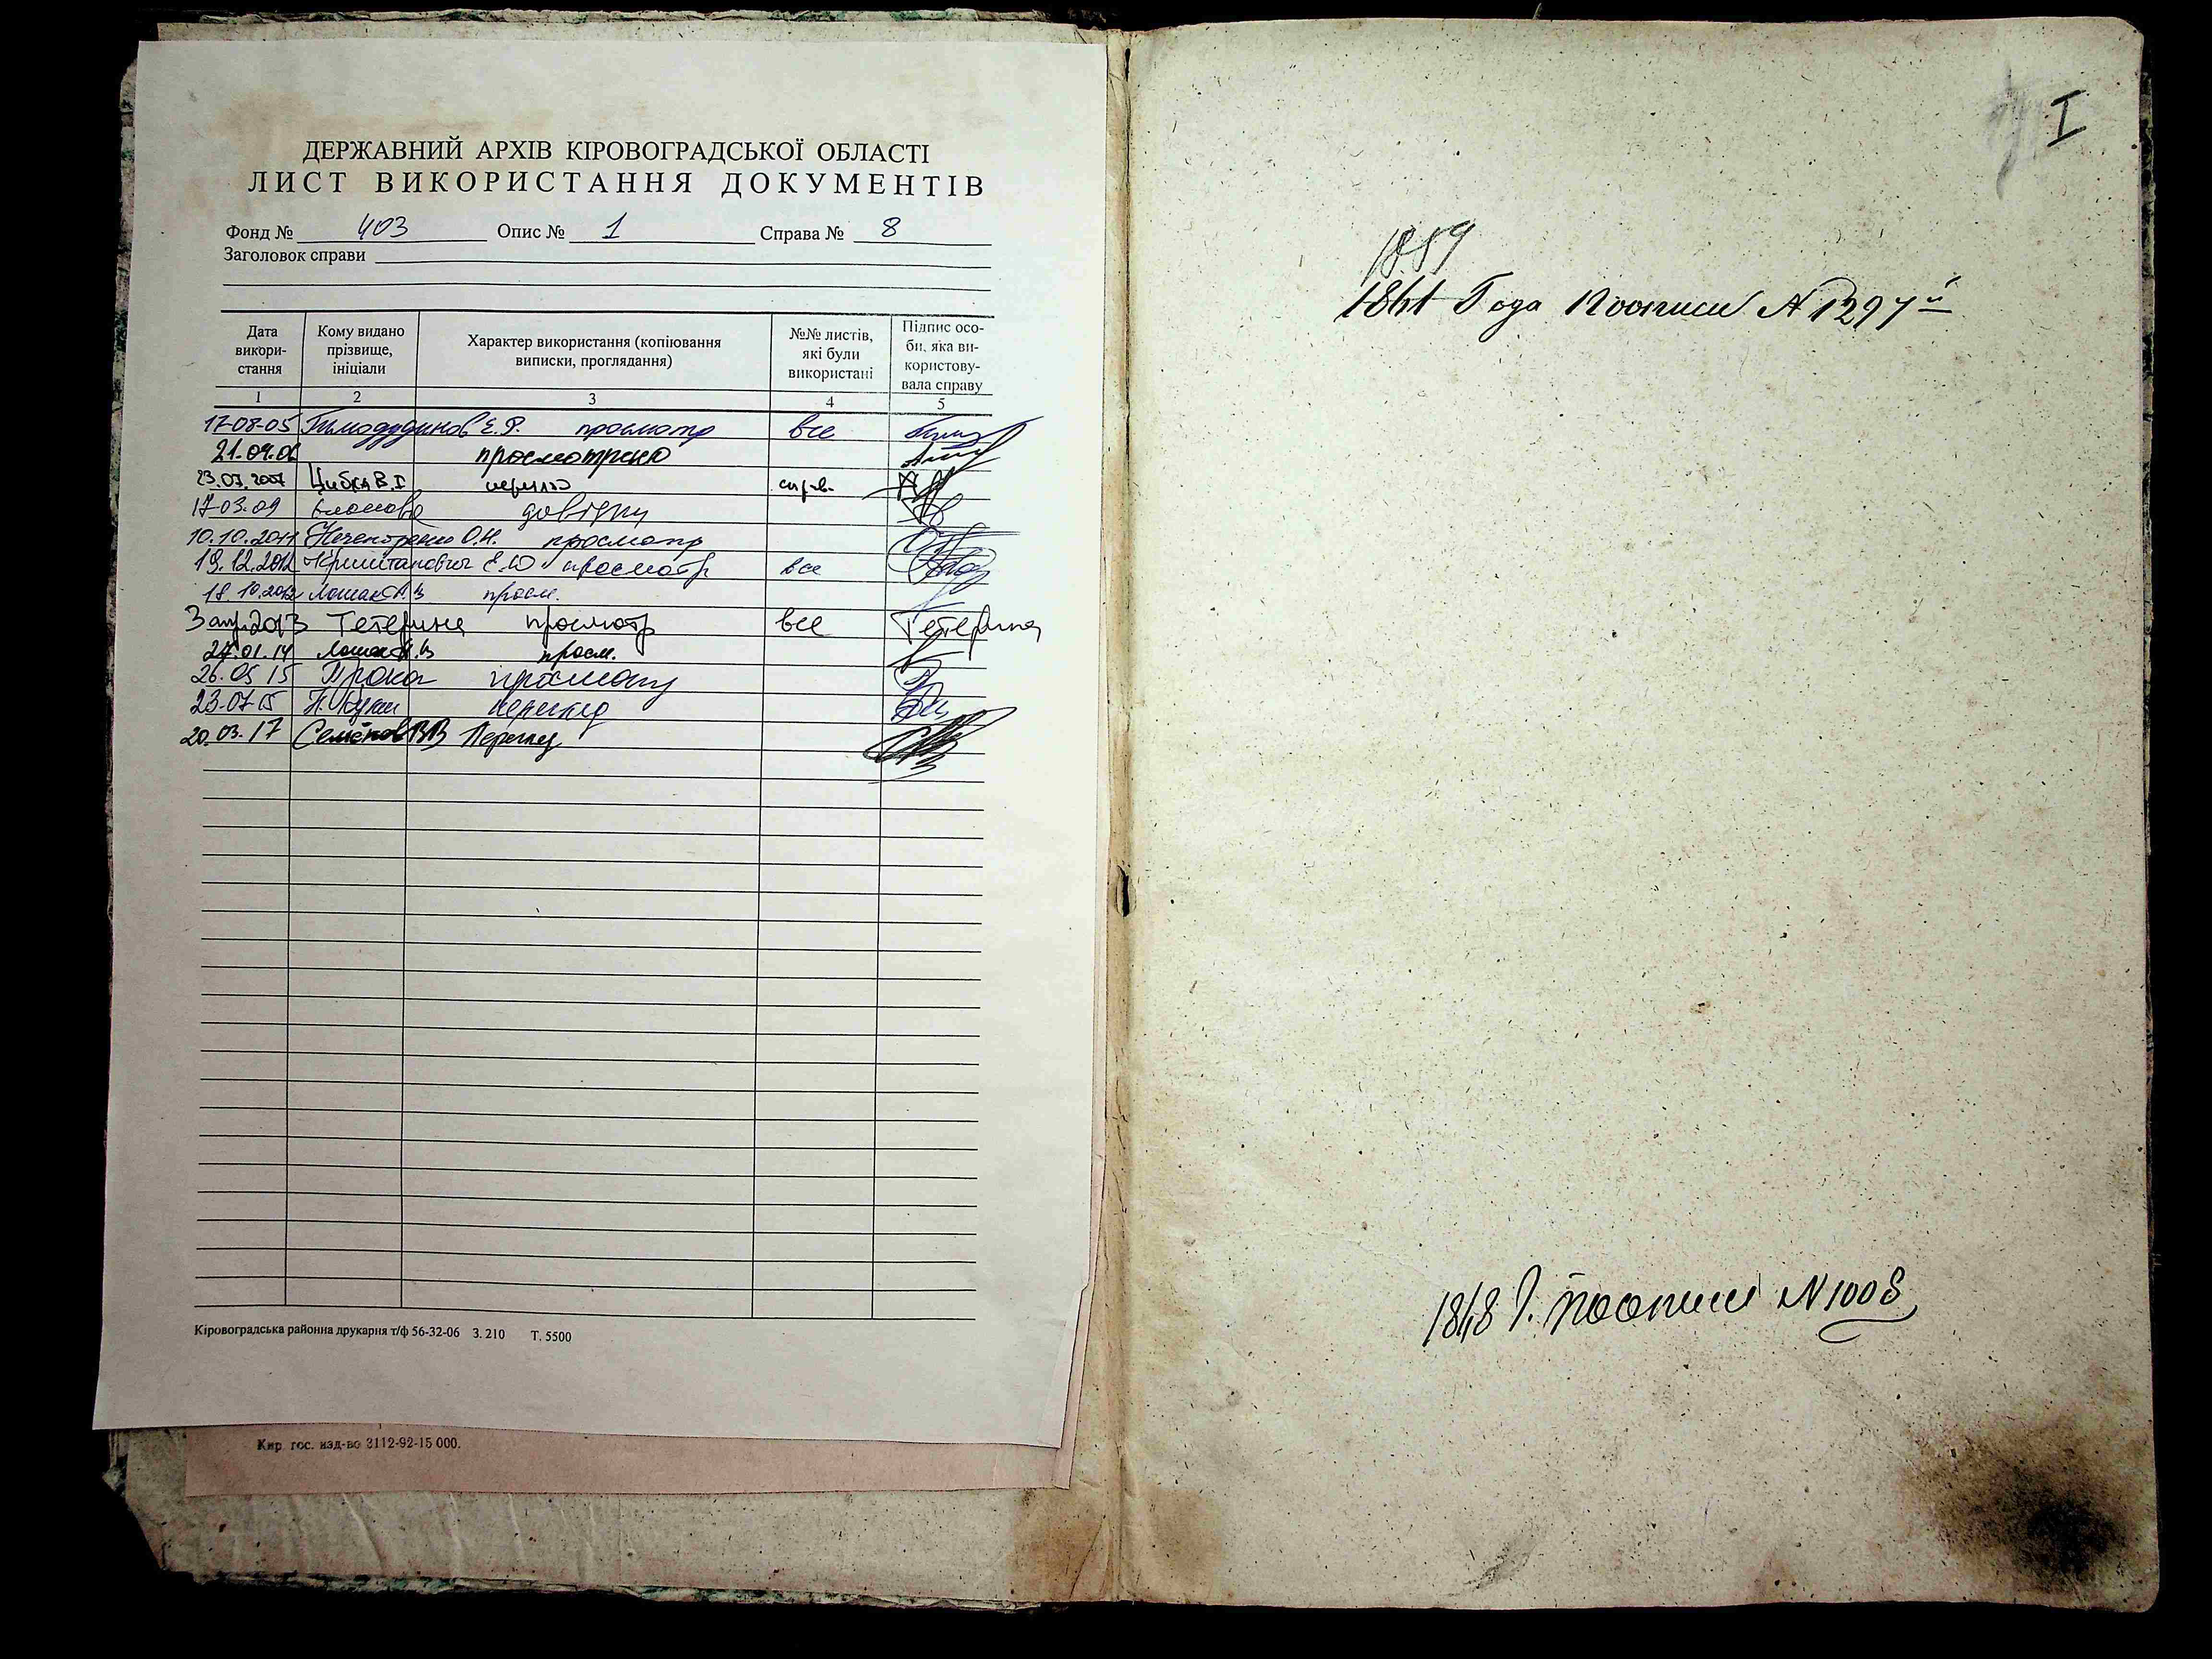 ДЕРЖАВНИЙ АРХІВ КІРОВОГРАДСЬКОЇ ОБЛАСТІ
ЛИСТ ВИКОРИСТАННЯ ДОКУМЕНТІВ
Фонд № 403 Опис № 1 Справа № 8
Заголовок справи
Дата викори-стання
Кому видано прізвище, ініціали
Характер використання (копіювання виписки, проглядання)
№№ листів, які були використані
Підпис осо-би, яка ви-користову-вала справу
1 2 3 4 5
17-08-05 Е.Р. просмотр все
21.04.06 просмотрено
23.07.2007 Цибка В.І
17-03-09 довідку
10.10.2011 О.Н. просмотр
19.12.2012 Е.Ю просмотр все
18.10.2012 просм.
3 апр.2013 Тетерина просмотр все Тетерина
27.01.14 просм.
26.05 15 просмотр
23-07-15 перегляд
20.03.17 Семенов ВВ Перегляд
Кіровоградська районна друкарня т/ф 56-32-06 З. 210 Т. 5500
Кир. гос. изд-во 3112-92-15 000.
I
1859
1841 Года по описи № 1297й
1848 г. по описи № 1008